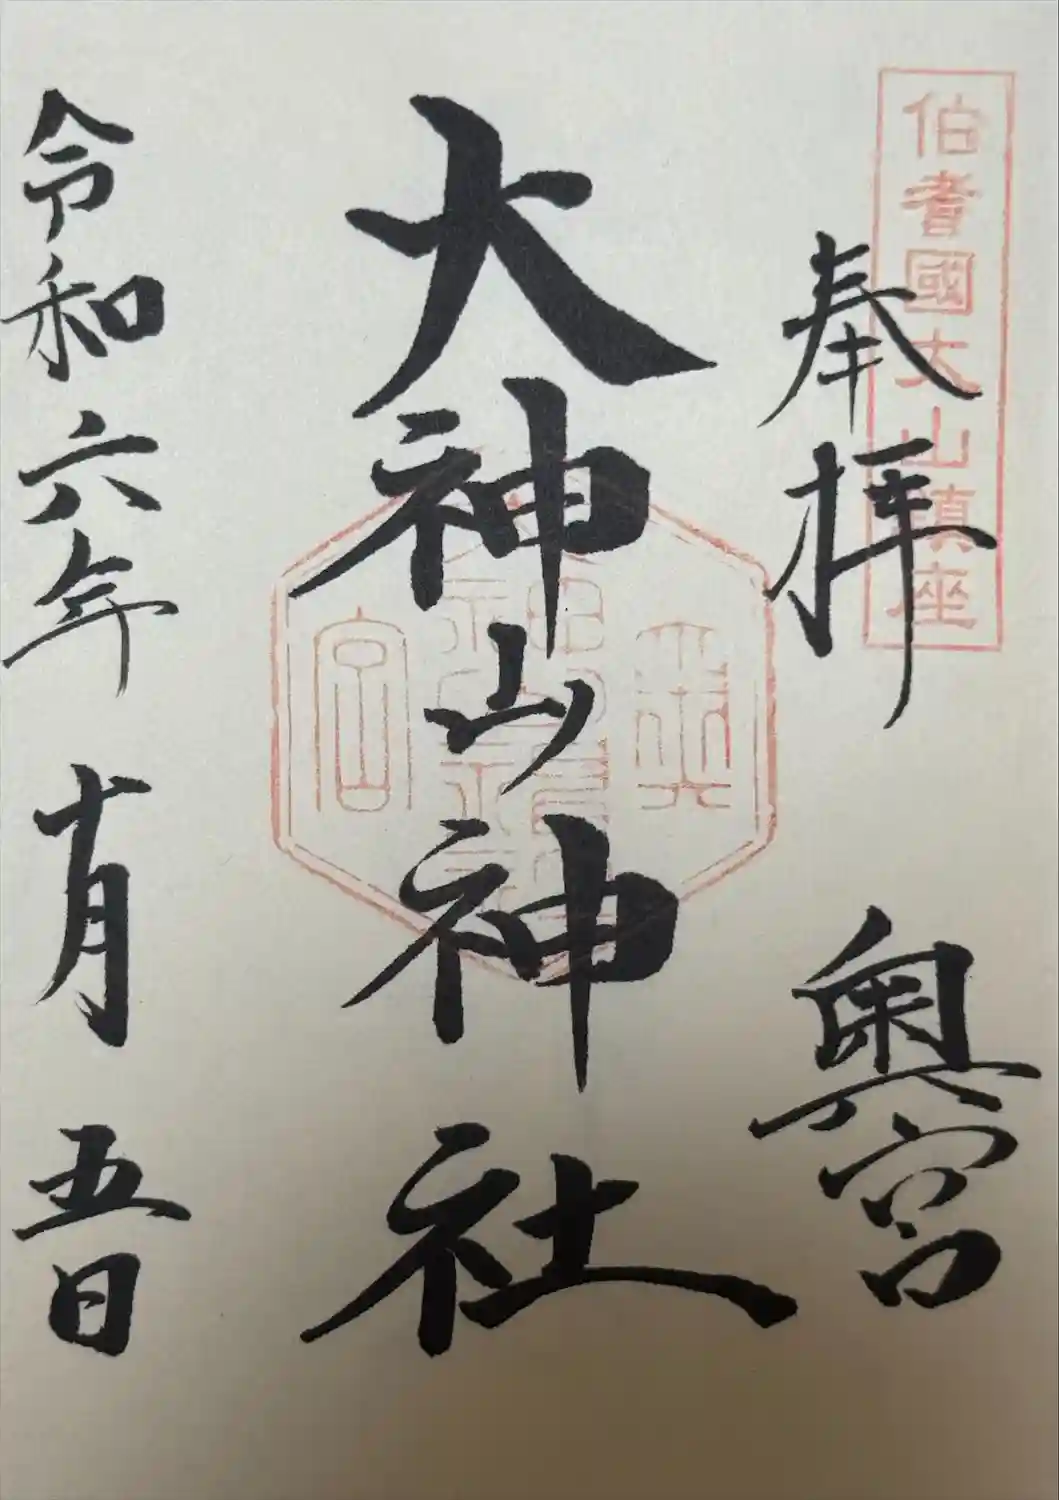 伯耆國大山鎮座
奉拝
奥宮
大神山神社
奥
宮
令和六年 十月 五日